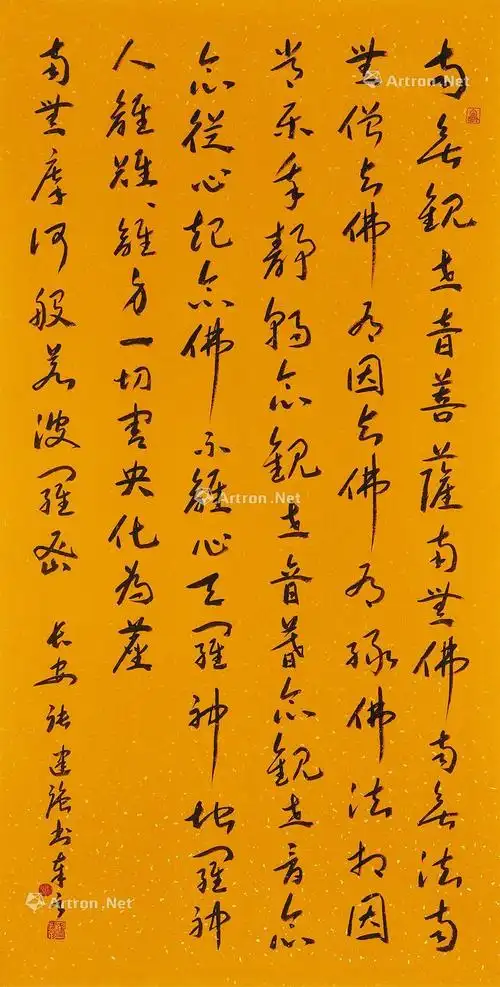 南無觀世音菩薩南無佛南無法南
無僧与佛有因与佛有緣佛法相因
常乐我靜朝念觀世音暮念觀世音念
念從心起念佛不離心天羅神地羅神
人離難、離身一切害央化為塵
南無摩訶般若波羅密
長安張建強书
Artron.Net
Artron.Net
Artron.Net
Artron.Net
Artron.Net
Artron.Net